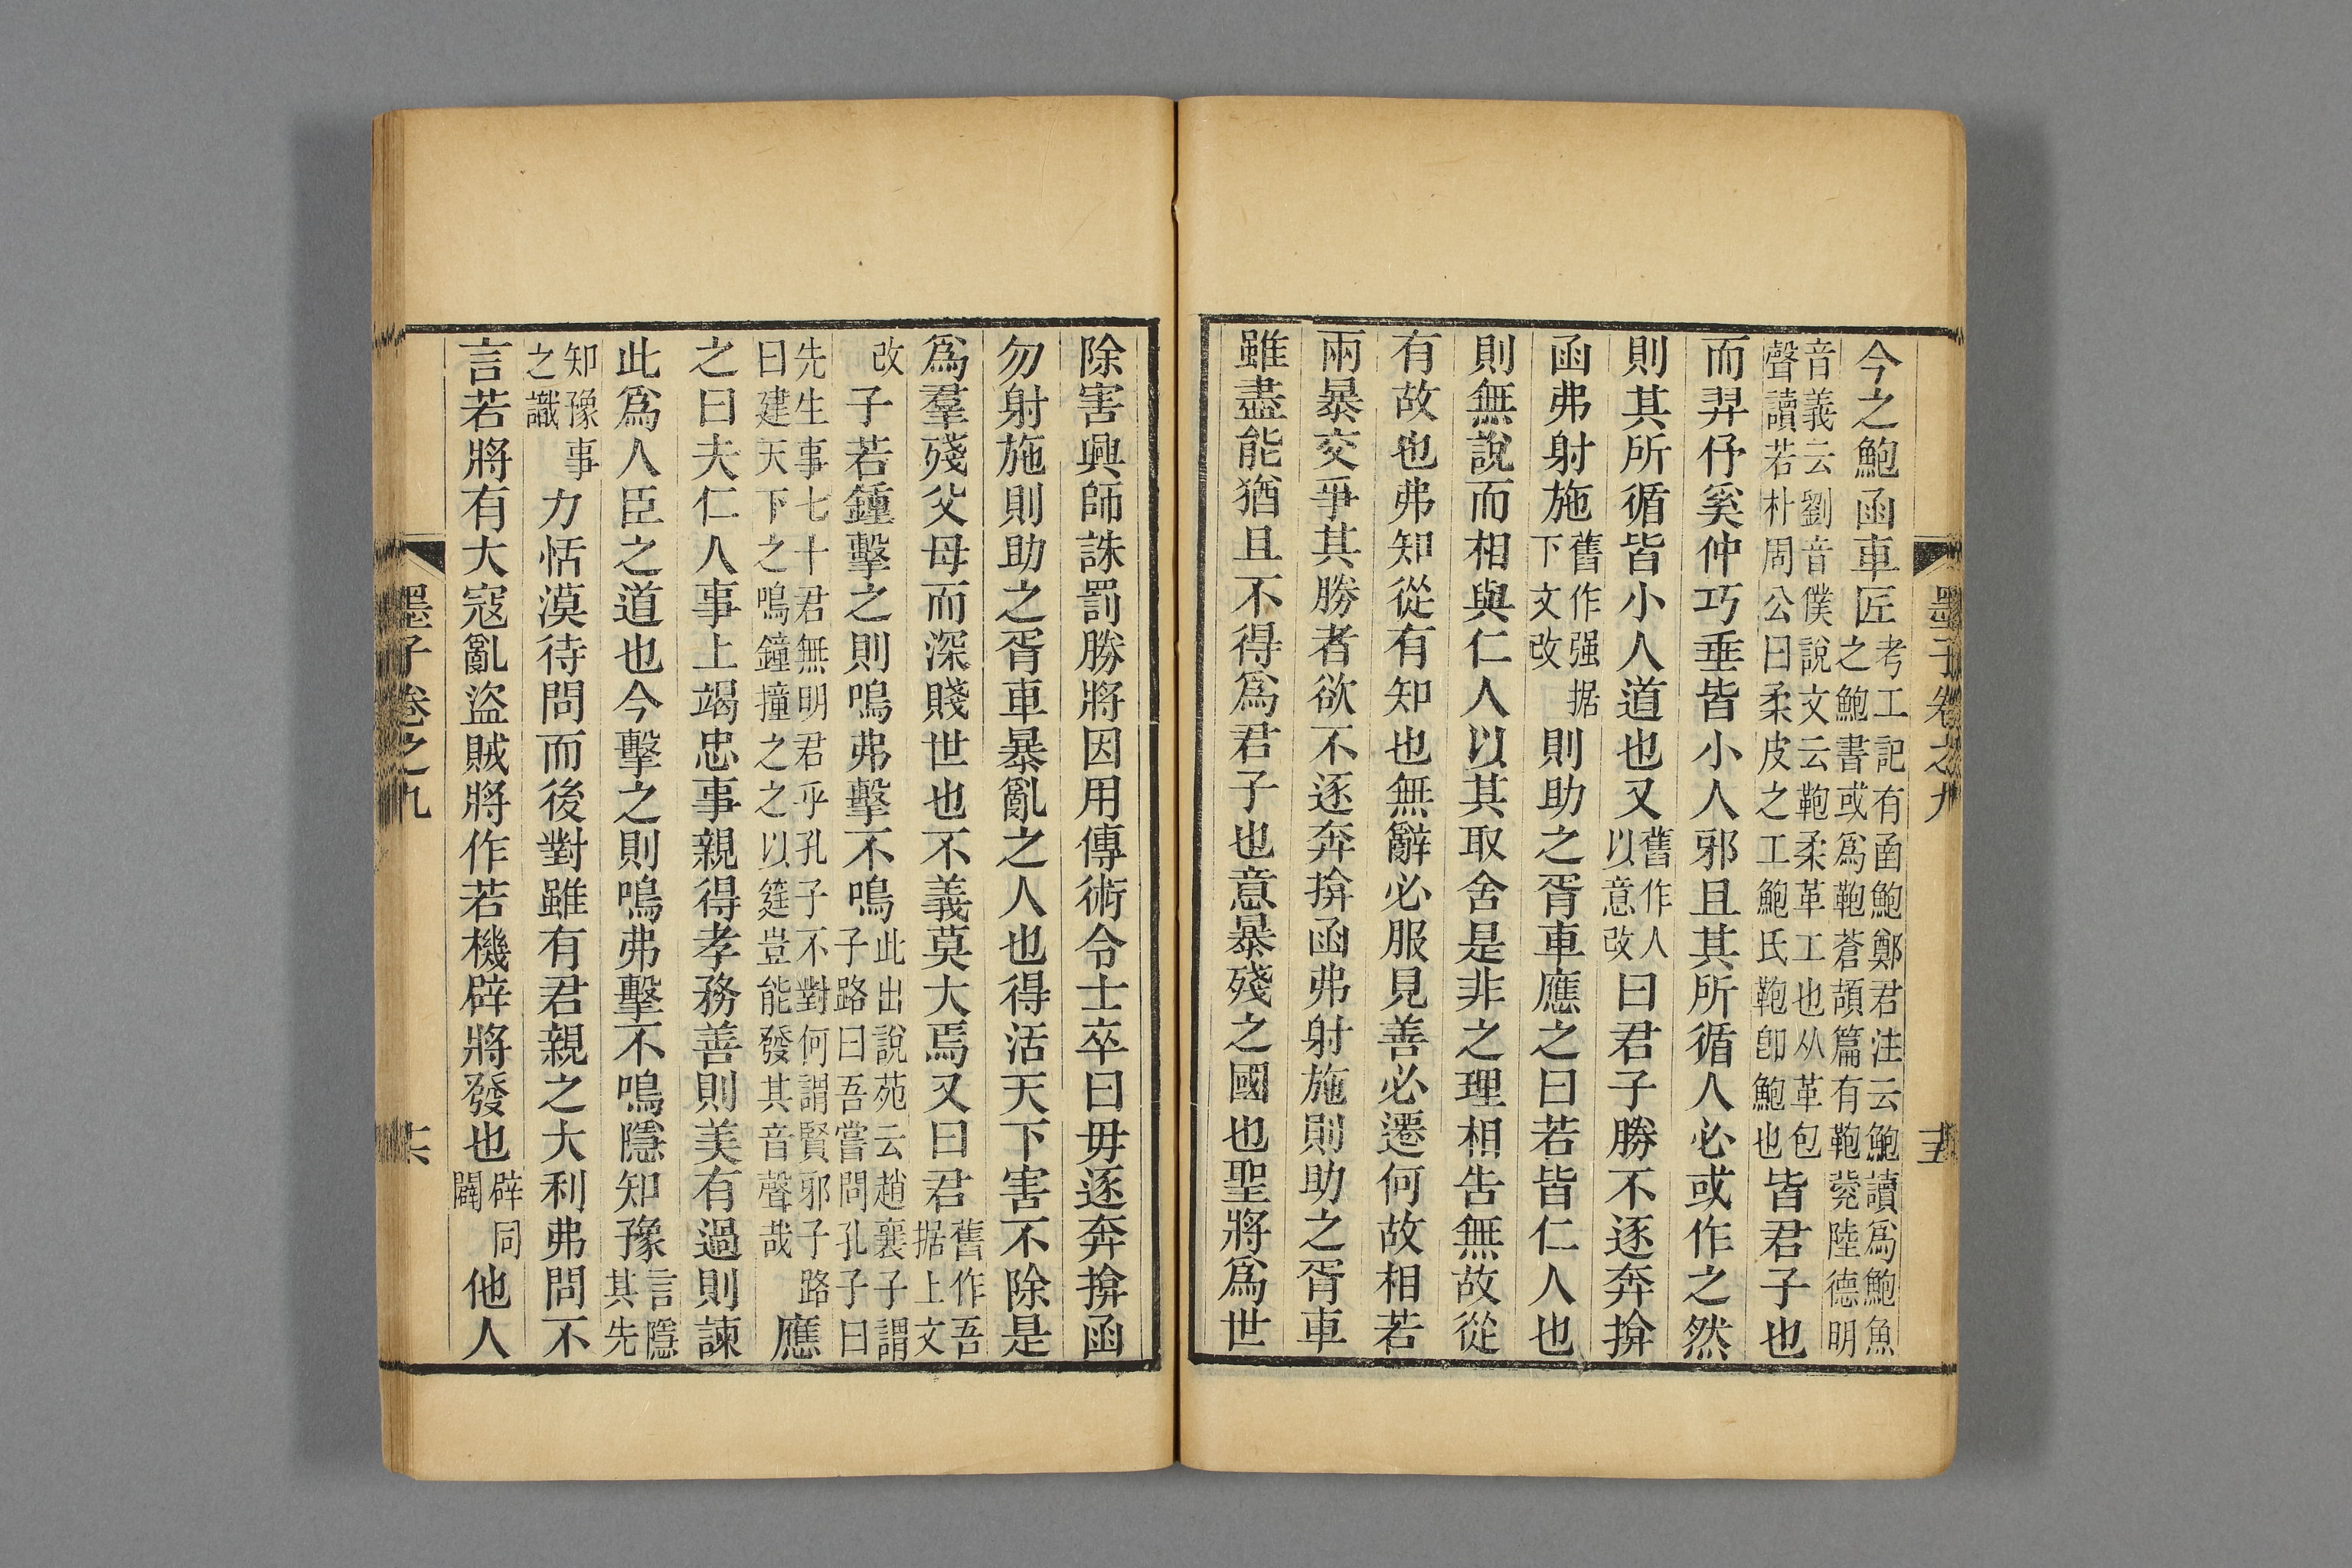 墨子卷之九 十五
今之鮑函車匠考工記有函鮑鄭君注云鮑讀爲鮑魚之鮑書或爲鞄蒼頡篇有鞄㼱陸德明
音義云劉音僕說文云鞄柔革工也从革包聲讀若朴周公曰柔皮之工鮑氏鞄卽鮑也皆君子也
而羿伃奚仲巧垂皆小人邪且其所循人必或作之然
則其所循皆小人道也又舊作人以意改曰君子勝不逐奔揜
函弗射施舊作强据下文改則助之胥車應之曰若皆仁人也
則無說而相與仁人以其取舍是非之理相告無故從
有故也弗知從有知也無辭必服見善必遷何故相若
兩暴交爭其勝者欲不逐奔揜函弗射施則助之胥車
雖盡能猶且不得爲君子也意暴殘之國也聖將爲世
除害興師誅罰勝將因用傳術令士卒曰毋逐奔揜函
勿射施則助之胥車暴亂之人也得活天下害不除是
爲羣殘父母而深賤世也不義莫大焉又曰君舊作吾据上文
改子若鐘擊之則鳴弗擊不鳴此出說苑云趙襄子謂子路曰吾嘗問孔子曰
先生事七十君無明君乎孔子不對何謂賢邪子路曰建天下之鳴鐘撞之之以筳豈能發其音聲哉應
之曰夫仁人事上竭忠事親得孝務善則美有過則諫
此爲人臣之道也今擊之則鳴弗擊不鳴隱知豫言隱其先
知豫事之識力恬漠待問而後對雖有君親之大利弗問不
言若將有大寇亂盜賊將作若機辟將發也辟同闢他人
墨子卷之九 十六